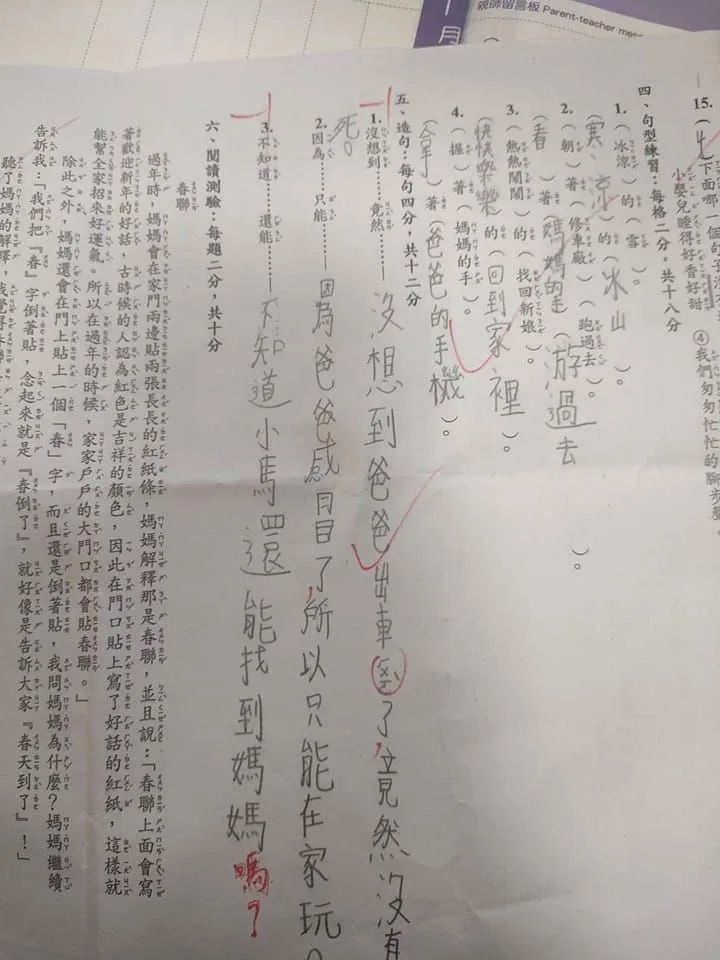 親師留言板 Parent-teacher mes
月
15.(4)下面哪一個句
小嬰兒睡得好香好甜 ④我們匆匆忙忙的腳步聲
四、句型練習:每格二分,共十八分
1.(冰涼)的(雪)。
(寒涼)的(冰山)。
2.(朝)著(修車廠)(跑過去)。
(看)著(媽媽的)(游過去)。
3.(熱熱鬧鬧)的(找回新娘)。
(快快樂樂)的(回到家裡)。
4.(握)著(媽媽的手)。
(拿)著(爸爸的手機)。
五、造句:每句四分,共十二分
1.沒想到……竟然……沒想到爸爸出車了,竟然沒有
死。
2.因為……只能……因為爸爸感冒了,所以只能在家玩。
3.不知道……還能……不知道小馬還能找到媽媽嗎?
六、閱讀測驗:每題二分,共十分
春聯
過年時,媽媽會在家門兩邊貼兩張長長的紅紙條,媽媽解釋那是春聯,並且說:「春聯上面會寫
著歡迎新年的好話,古時候的人認為紅色是吉祥的顏色,因此在門口貼上寫了好話的紅紙,這樣就
能幫全家招來好運氣。所以在過年的時候,家家戶戶的大門口都會貼春聯。」
除此之外,媽媽還會在門上貼上一個「春」字,而且還是倒著貼,我問媽媽為什麼?媽媽繼續
告訴我:「我們把『春』字倒著貼,念起來就是『春倒了』,就好像是告訴大家『春天到了』!」
聽了媽媽的解釋,我覺得春聯